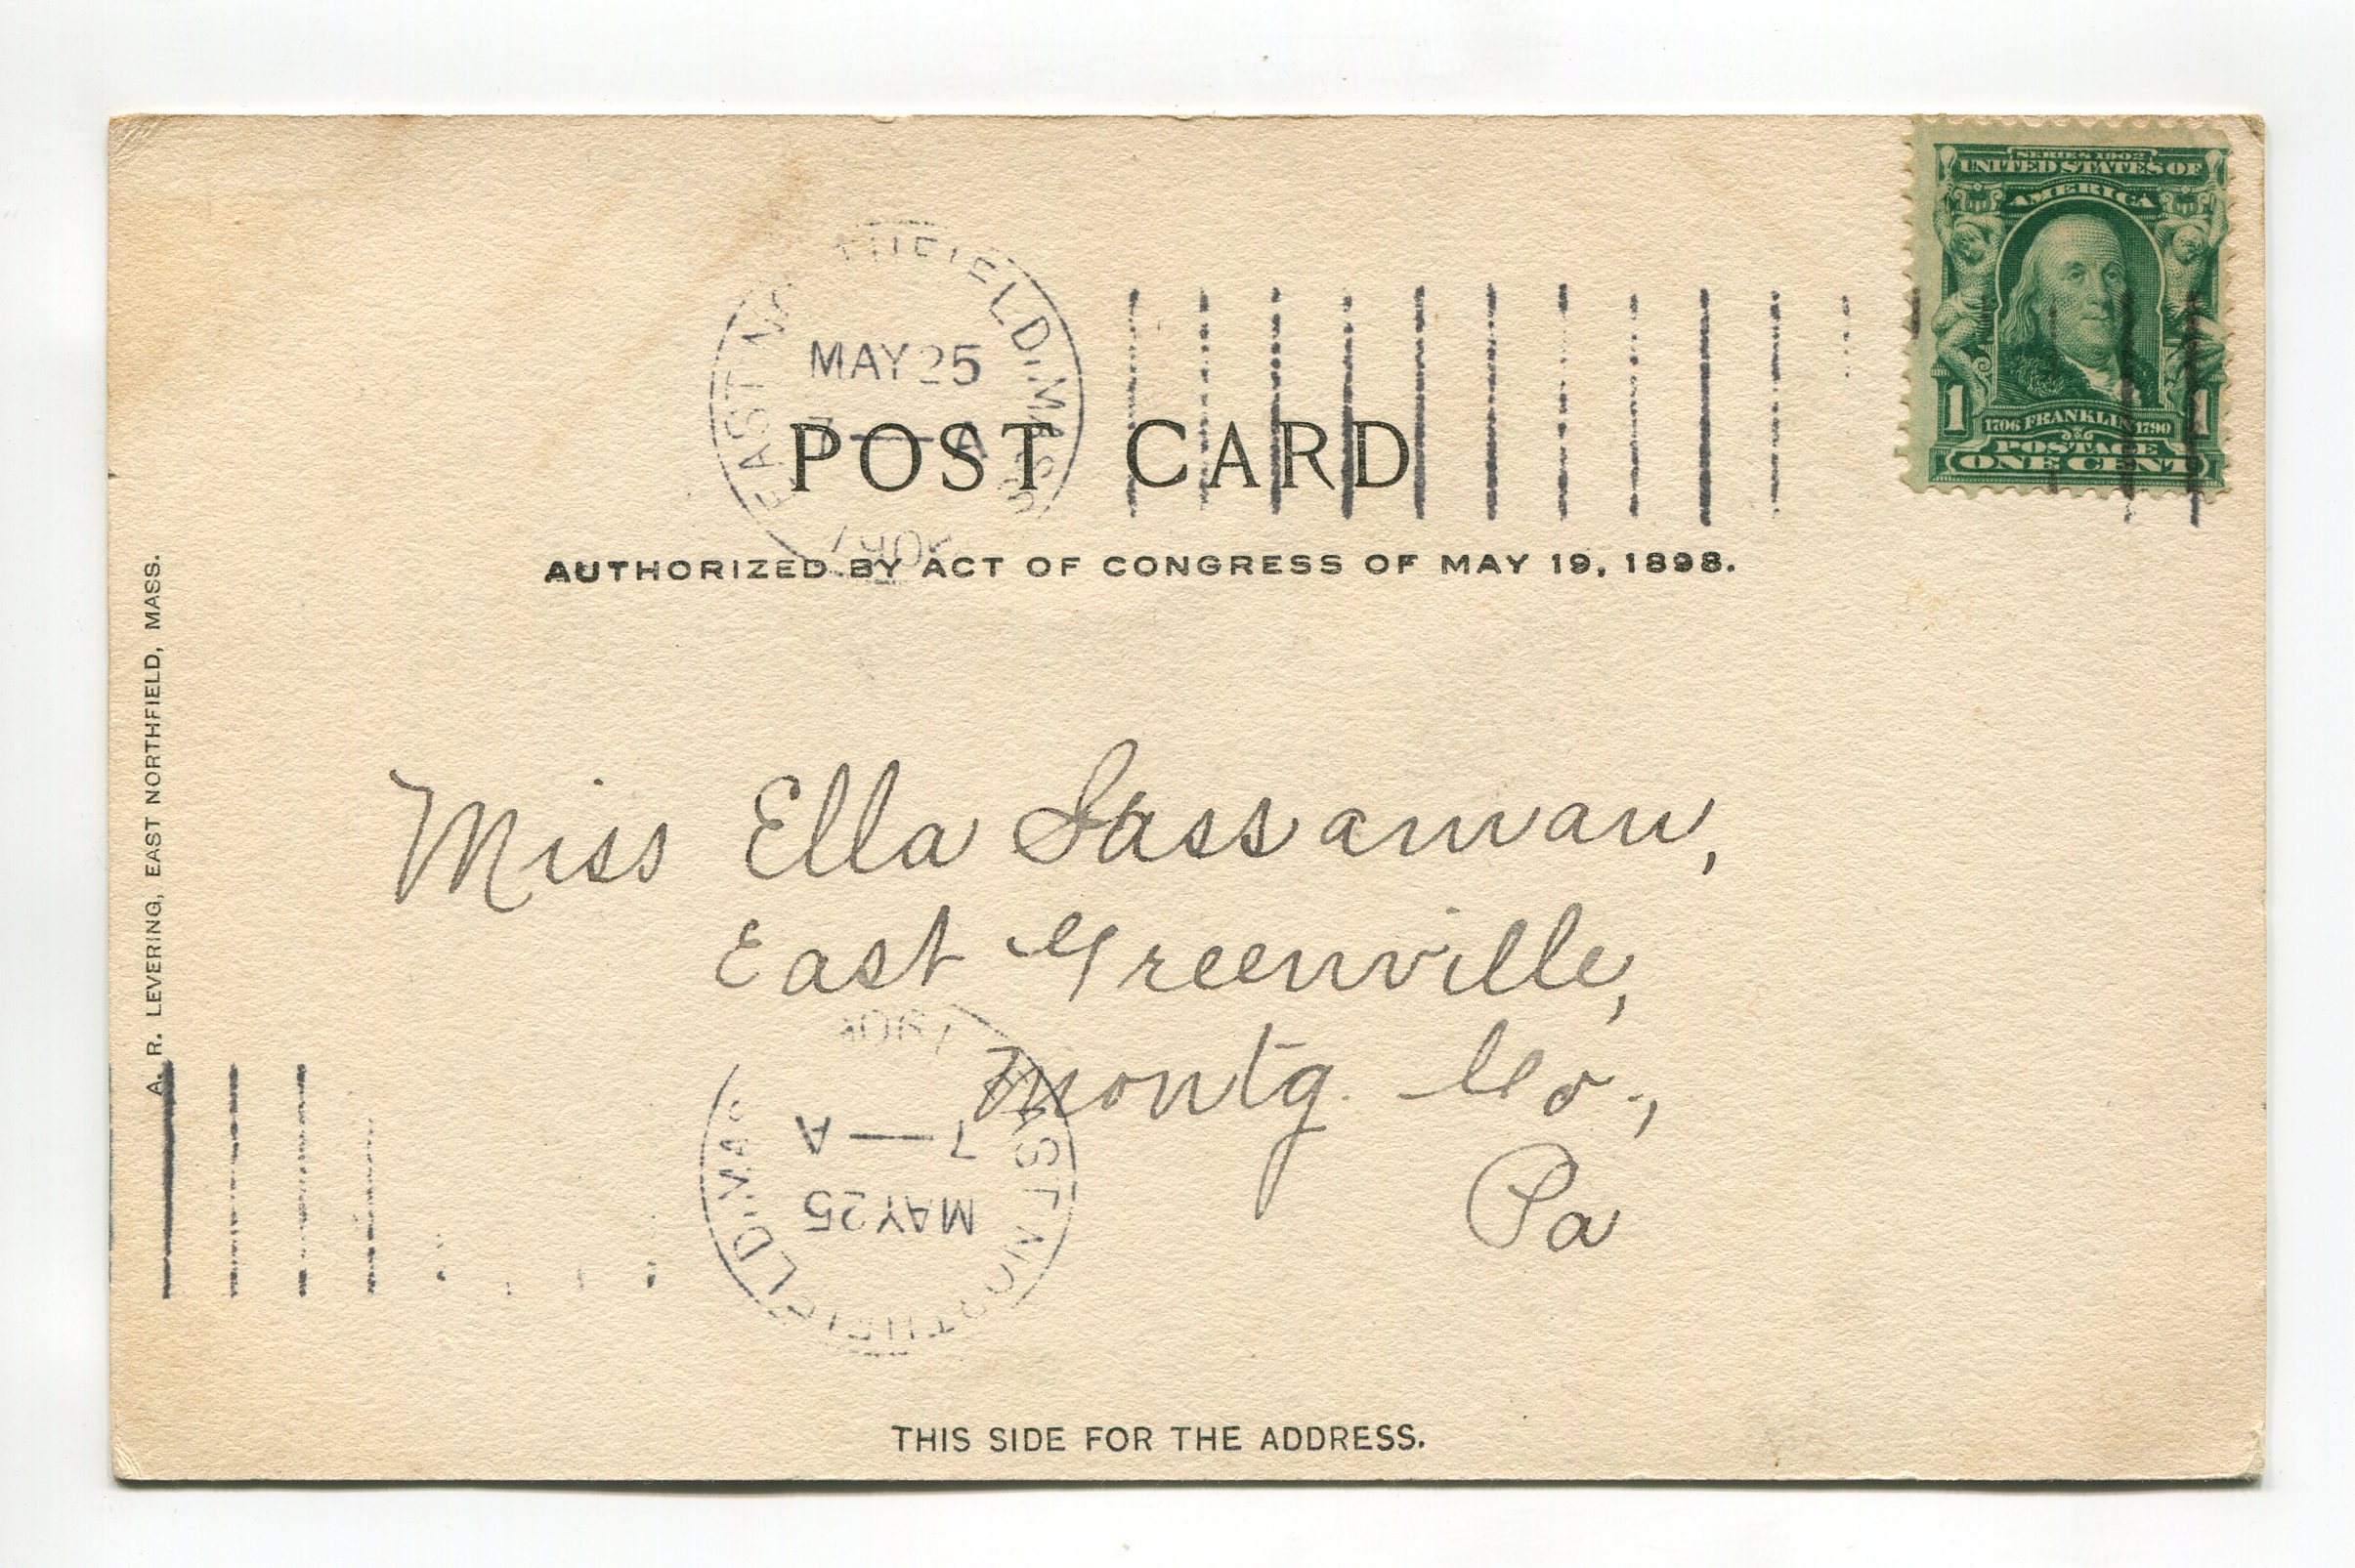 SERIES 1902
UNITED STATES OF
AMERICA
1 1
1706 FRANKLIN 1790
POSTAGE
ONE CENT
EAST NO THFIELD, MASS
MAY 25
7 — A
POST CARD
AUTHORIZED BY ACT OF CONGRESS OF MAY 19, 1898.
A. R. LEVERING, EAST NORTHFIELD, MASS.
Miss Ella Sassaman,
East Greenville,
Montg. Co.,
Pa
EAST NORTHFIELD, MAS
MAY 25
7 — A
THIS SIDE FOR THE ADDRESS.